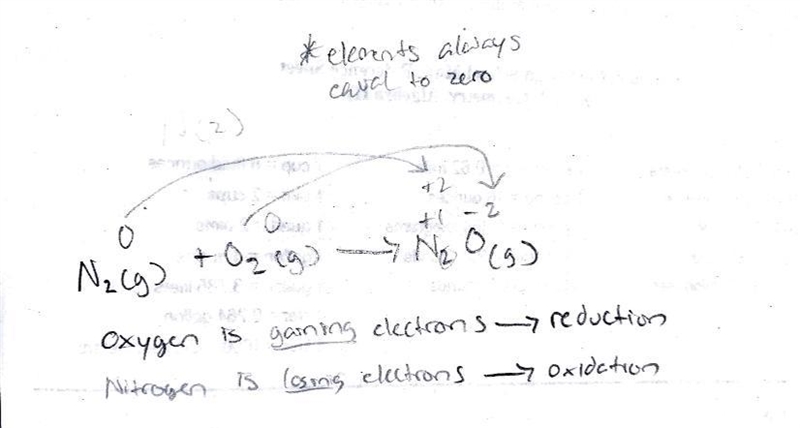 *elements always
equal to zero
0 0 +2
+1 -2
N₂(g) + O₂(g) → N₂O(g)
Oxygen is gaining electrons → reduction
Nitrogen is losing electrons → oxidation